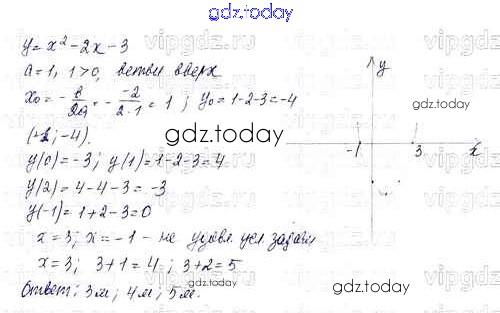 gdz.today
y = x² - 2x - 3
a = 1, 1 > 0, ветви вверх
x₀ = -в/2a = - -2/2·1 = 1 ; y₀ = 1-2-3 = -4
gdz.today
(1; -4).
gdz.today
y(0) = -3; y(1) = 1-2-3 = 4
y(2) = 4-4-3 = -3
y(-1) = 1+2-3 = 0
x = 3; x = -1 - не удовл. усл. задачи
x = 3; 3+1 = 4 ; 3+2 = 5
Ответ: 3м, 4м, 5м.
y
-1 3 x
gdz.today
gdz.today
vipgdz